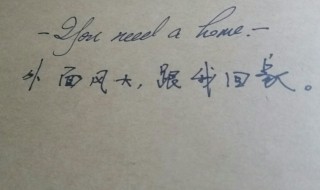 -You need a home.-
外面风大，跟我回家。